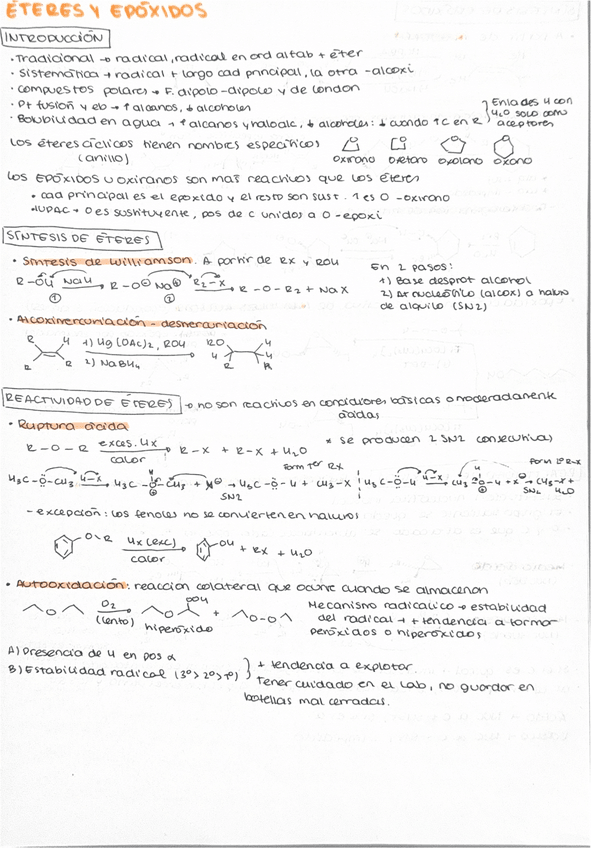 ÉTERES Y EPÓXIDOS
INTRODUCCIÓN
• Tradicional → radical, radical en ord alfab + éter
• Sistemática → radical + largo cad principal, la otra -alcoxi
• Compuestos polares → F. dipolo-dipolo y de London
• Pt fusión y eb → ↑ alcanos, ↓ alcoholes
• Solubilidad en agua → ↑ alcanos y haloalc, ↓ alcoholes: ↓ cuando ↑C en R
Enlaces H con
H2O solo como
aceptores
Los éteres cíclicos tienen nombres específicos
(anillo)
oxirano oxetano oxolano oxano
Los EPÓXIDOS u oxiranos son más reactivos que los éteres
• cad principal es el epóxido y el resto son sust. 1 es O -oxirano
• IUPAC → O es sustituyente, pos de C unidos a O -epoxi
SÍNTESIS DE ÉTERES
• Síntesis de Williamson. A partir de RX y ROH
R-OH NaH R-O⊖ Na⊕ R2-X → R-O-R2 + NaX
① ②
En 2 pasos:
1) Base desprot alcohol
2) At nucleófilo (alcox) a haluro
de alquilo (SN2)
• Alcoximercuriación - desmercuriación
R H 1) Hg(OAc)2, ROH RO H
R 2) NaBH4 H R
REACTIVIDAD DE ÉTERES → no son reactivos en condiciones básicas o moderadamente
ácidas
• Ruptura ácida
R-O-R exces. HX → R-X + R-X + H2O * se producen 2 SN2 consecutivas
calor
form 1er RX
H3C-O-CH3 H-X → H3C-O-CH3 + X⊖ → H3C-O-H + CH3-X
SN2
H3C-O-H H-X → CH3-O-H + X⊖ → CH3-X +
SN2 H2O
- excepción: los fenoles no se convierten en haluros
O-R HX (exc) OH + RX + H2O
calor
• Autooxidación: reacción colateral que ocurre cuando se almacenan
O O2 O OOH + O-O
(lento) hiperóxido
Mecanismo radicalico → estabilidad
del radical → + tendencia a formar
peróxidos o hiperóxidos
A) Presencia de H en pos α
B) Estabilidad radical (3º > 2º > 1º)
+ tendencia a explotar
tener cuidado en el lab, no guardar en
botellas mal cerradas.